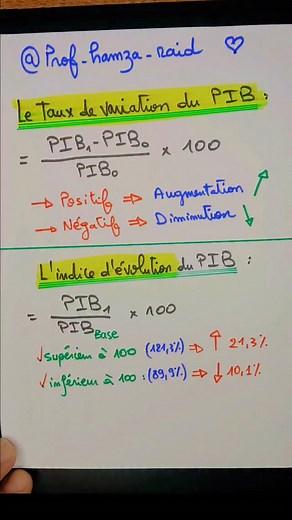 @Prof-hamza-raid ♡
Le Taux de variation du PIB :
= (PIB₁ - PIB₀) / PIB₀ × 100
→ Positif ⇒ Augmentation ↗
→ Négatif ⇒ Diminution ↓
L'indice d'évolution du PIB :
= PIB₁ / PIB Base × 100
✓supérieur à 100 (121,3%) ⇒ ↑ 21,3%
✓inférieur à 100 : (89,9%) ⇒ ↓ 10,1%